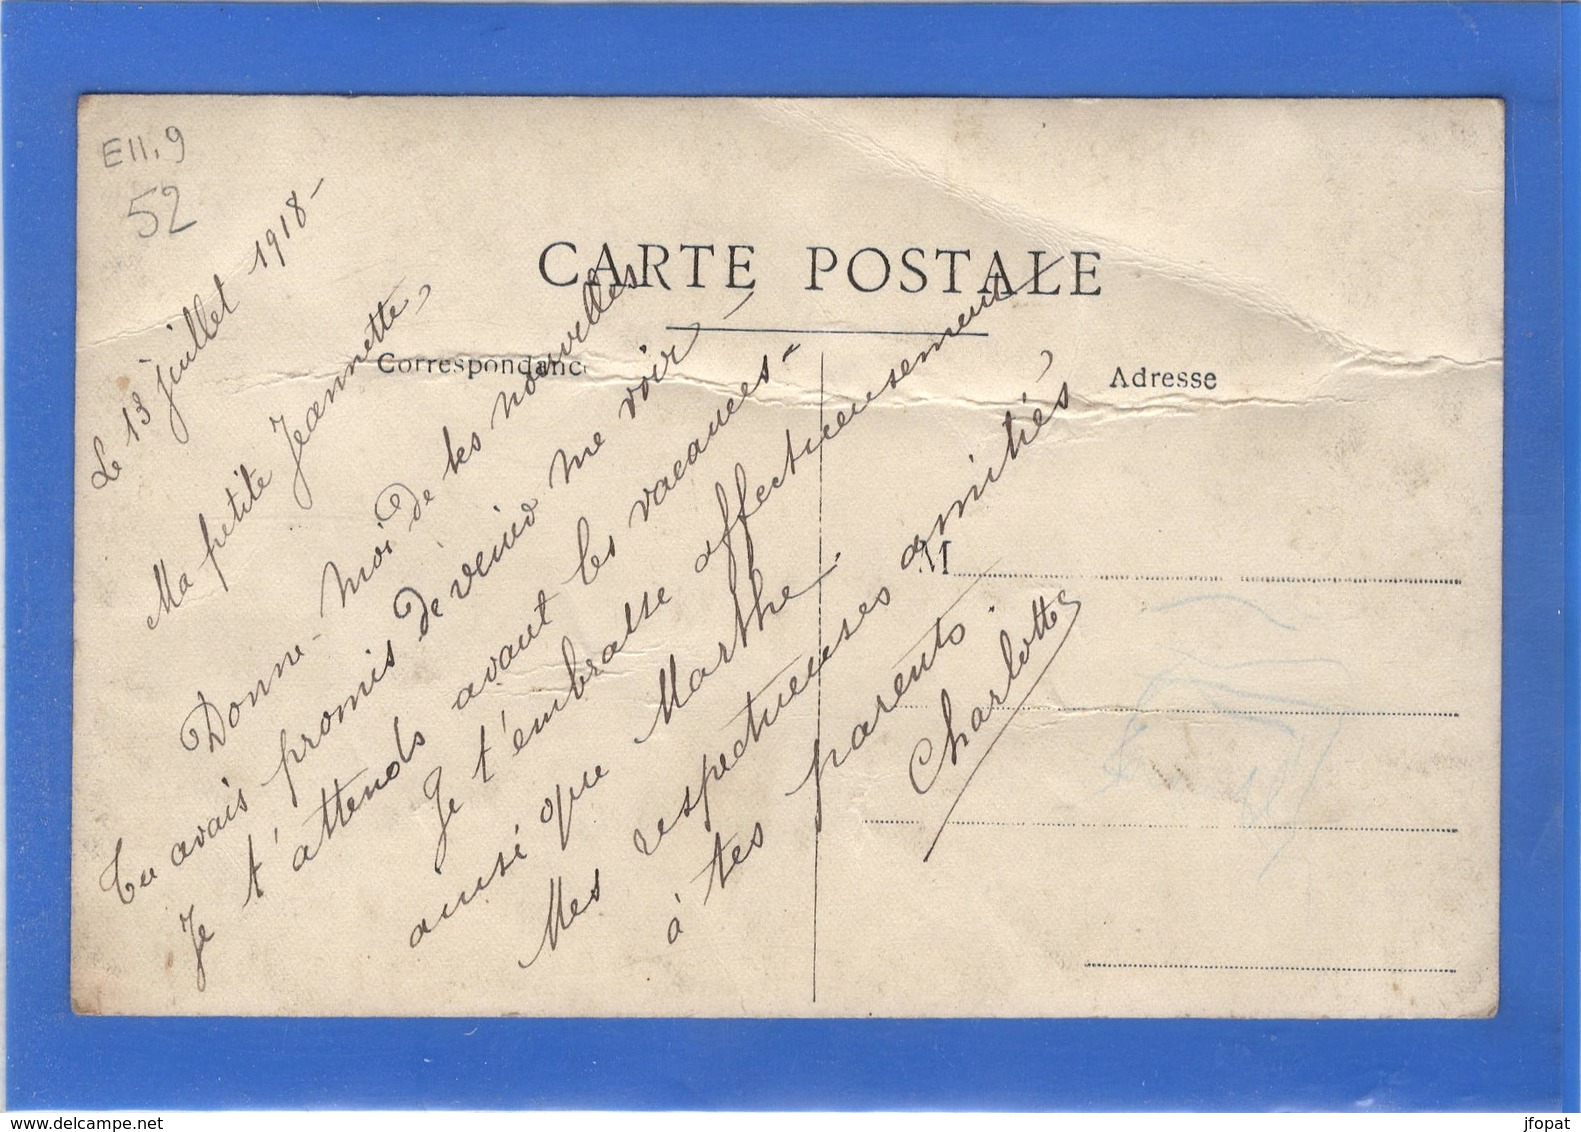 E11.9
52
CARTE POSTALE
Correspondance
Adresse
M
Le 13 Juillet 1918 -
Ma petite Jeannette,
Donne-moi de tes nouvelles
Tu avais promis de venir me voir -
Je t'attends avant les vacances -
Je t'embrasse affectueusement
ainsi que Marthe.
Mes respectueuses amitiés,
à tes parents.
Charlotte
www.delcampe.net
jfopat